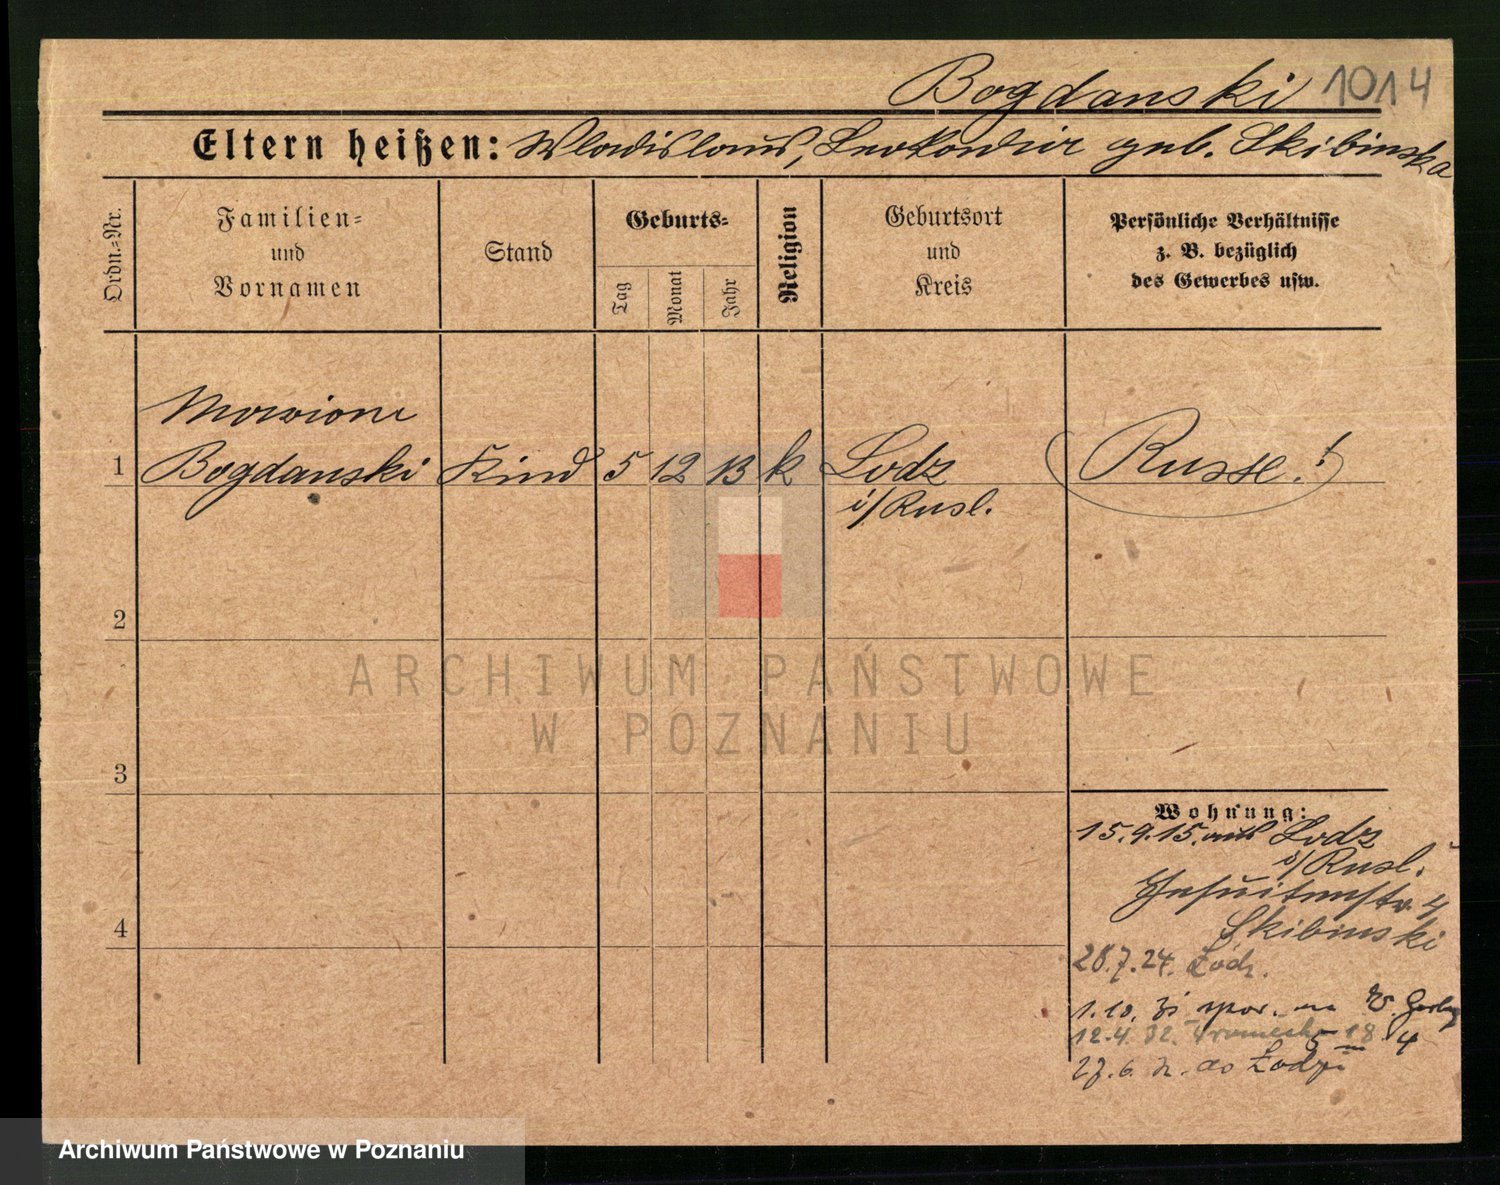 Bogdanski 1014
Eltern heißen: Wladislaus, Leokadia geb. Skibinska
Ordn.=Nr.
Familien=
und
Vornamen
Stand
Geburts=
Tag
Monat
Jahr
Religion
Geburtsort
und
Kreis
Persönliche Verhältnisse
z. B. bezüglich
des Gewerbes usw.
1
Bogdanski Kind 5 12 13 k Lodz
i/Rusl.
Russe!
2
3
4
Wohnung:
15.9.15. Lodz
i/Rusl.
Jesuitenstr. 4
Skibinski
28.7.24. Łódź.
1.10.
12.4.32. 18
27.6. do Łodzi
ARCHIWUM PAŃSTWOWE
W POZNANIU
Archiwum Państwowe w Poznaniu